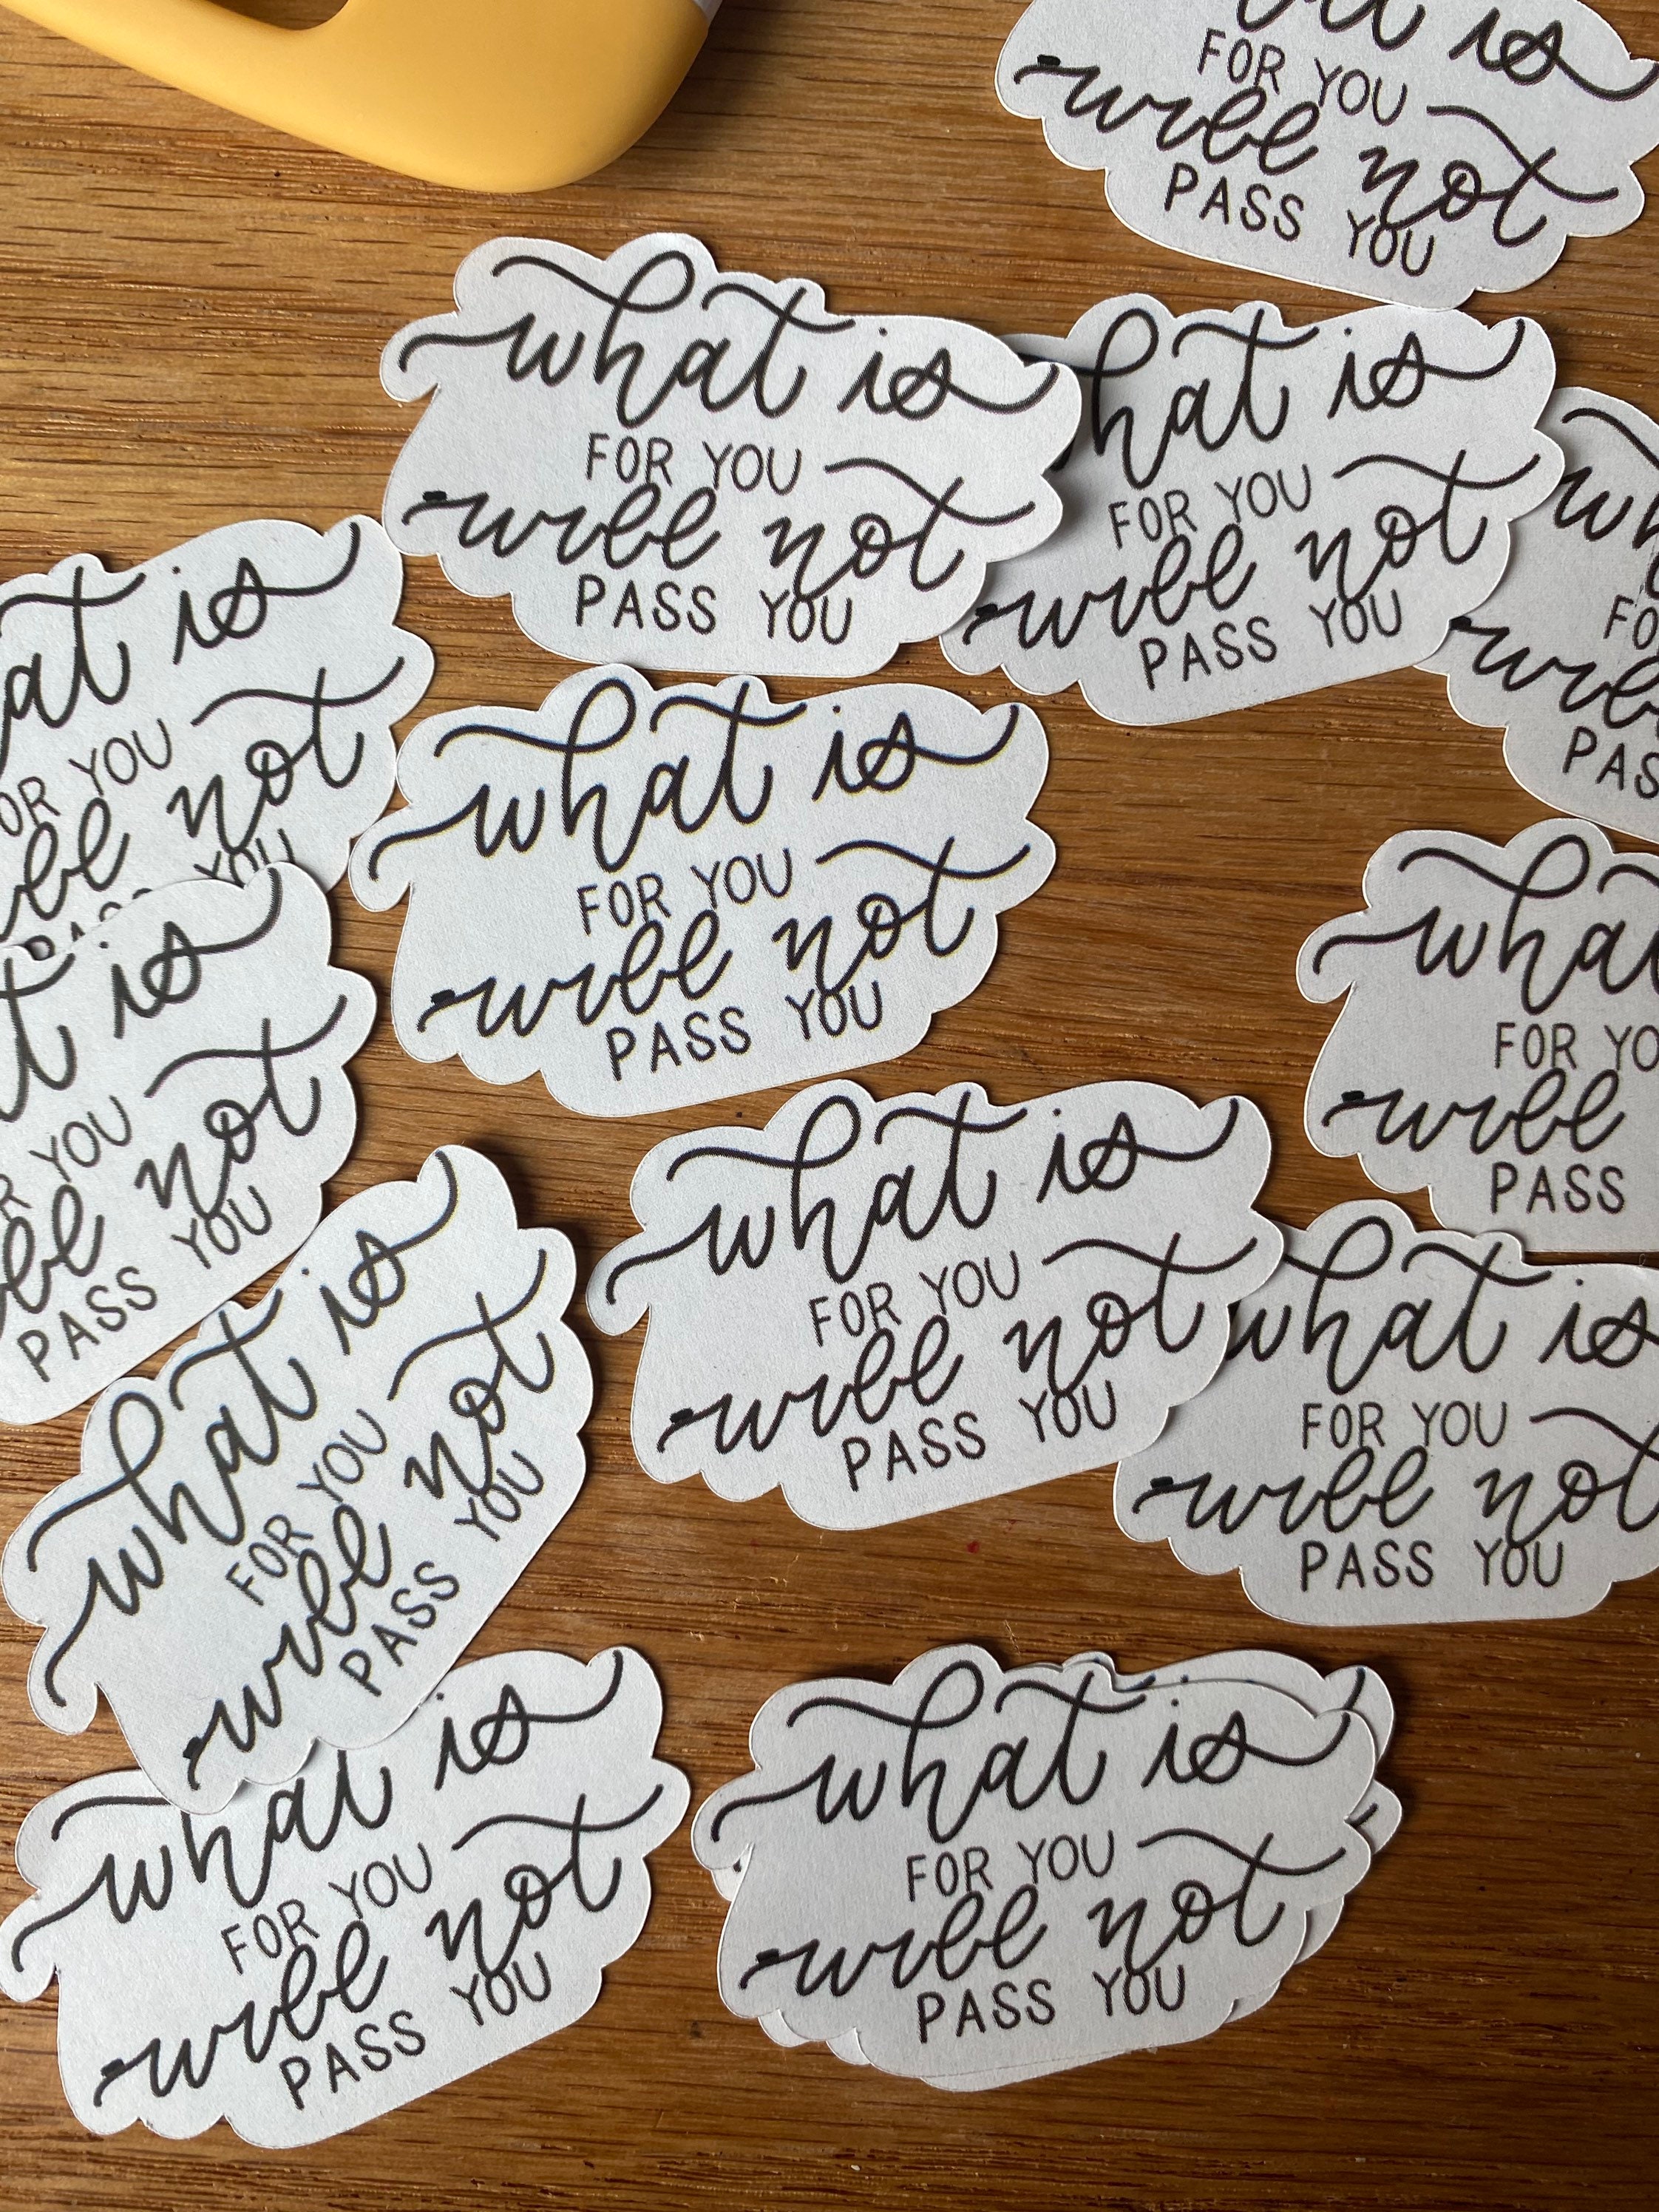 is
FOR YOU
will not
PASS YOU
what is
FOR YOU
will not
PASS YOU
hat is
FOR YOU
will not
PASS YOU
wh
FO
will
PAS
at is
OR YOU
ill not
PASS YOU
what is
FOR YOU
will not
PASS YOU
wha
FOR YO
will
PASS
t is
R YOU
ll not
PASS YOU
what is
FOR YOU
will not
PASS YOU
what is
FOR YOU
will not
PASS YOU
what is
FOR YOU
will not
PASS YOU
what is
FOR YOU
will not
PASS YOU
what is
FOR YOU
will not
PASS YOU